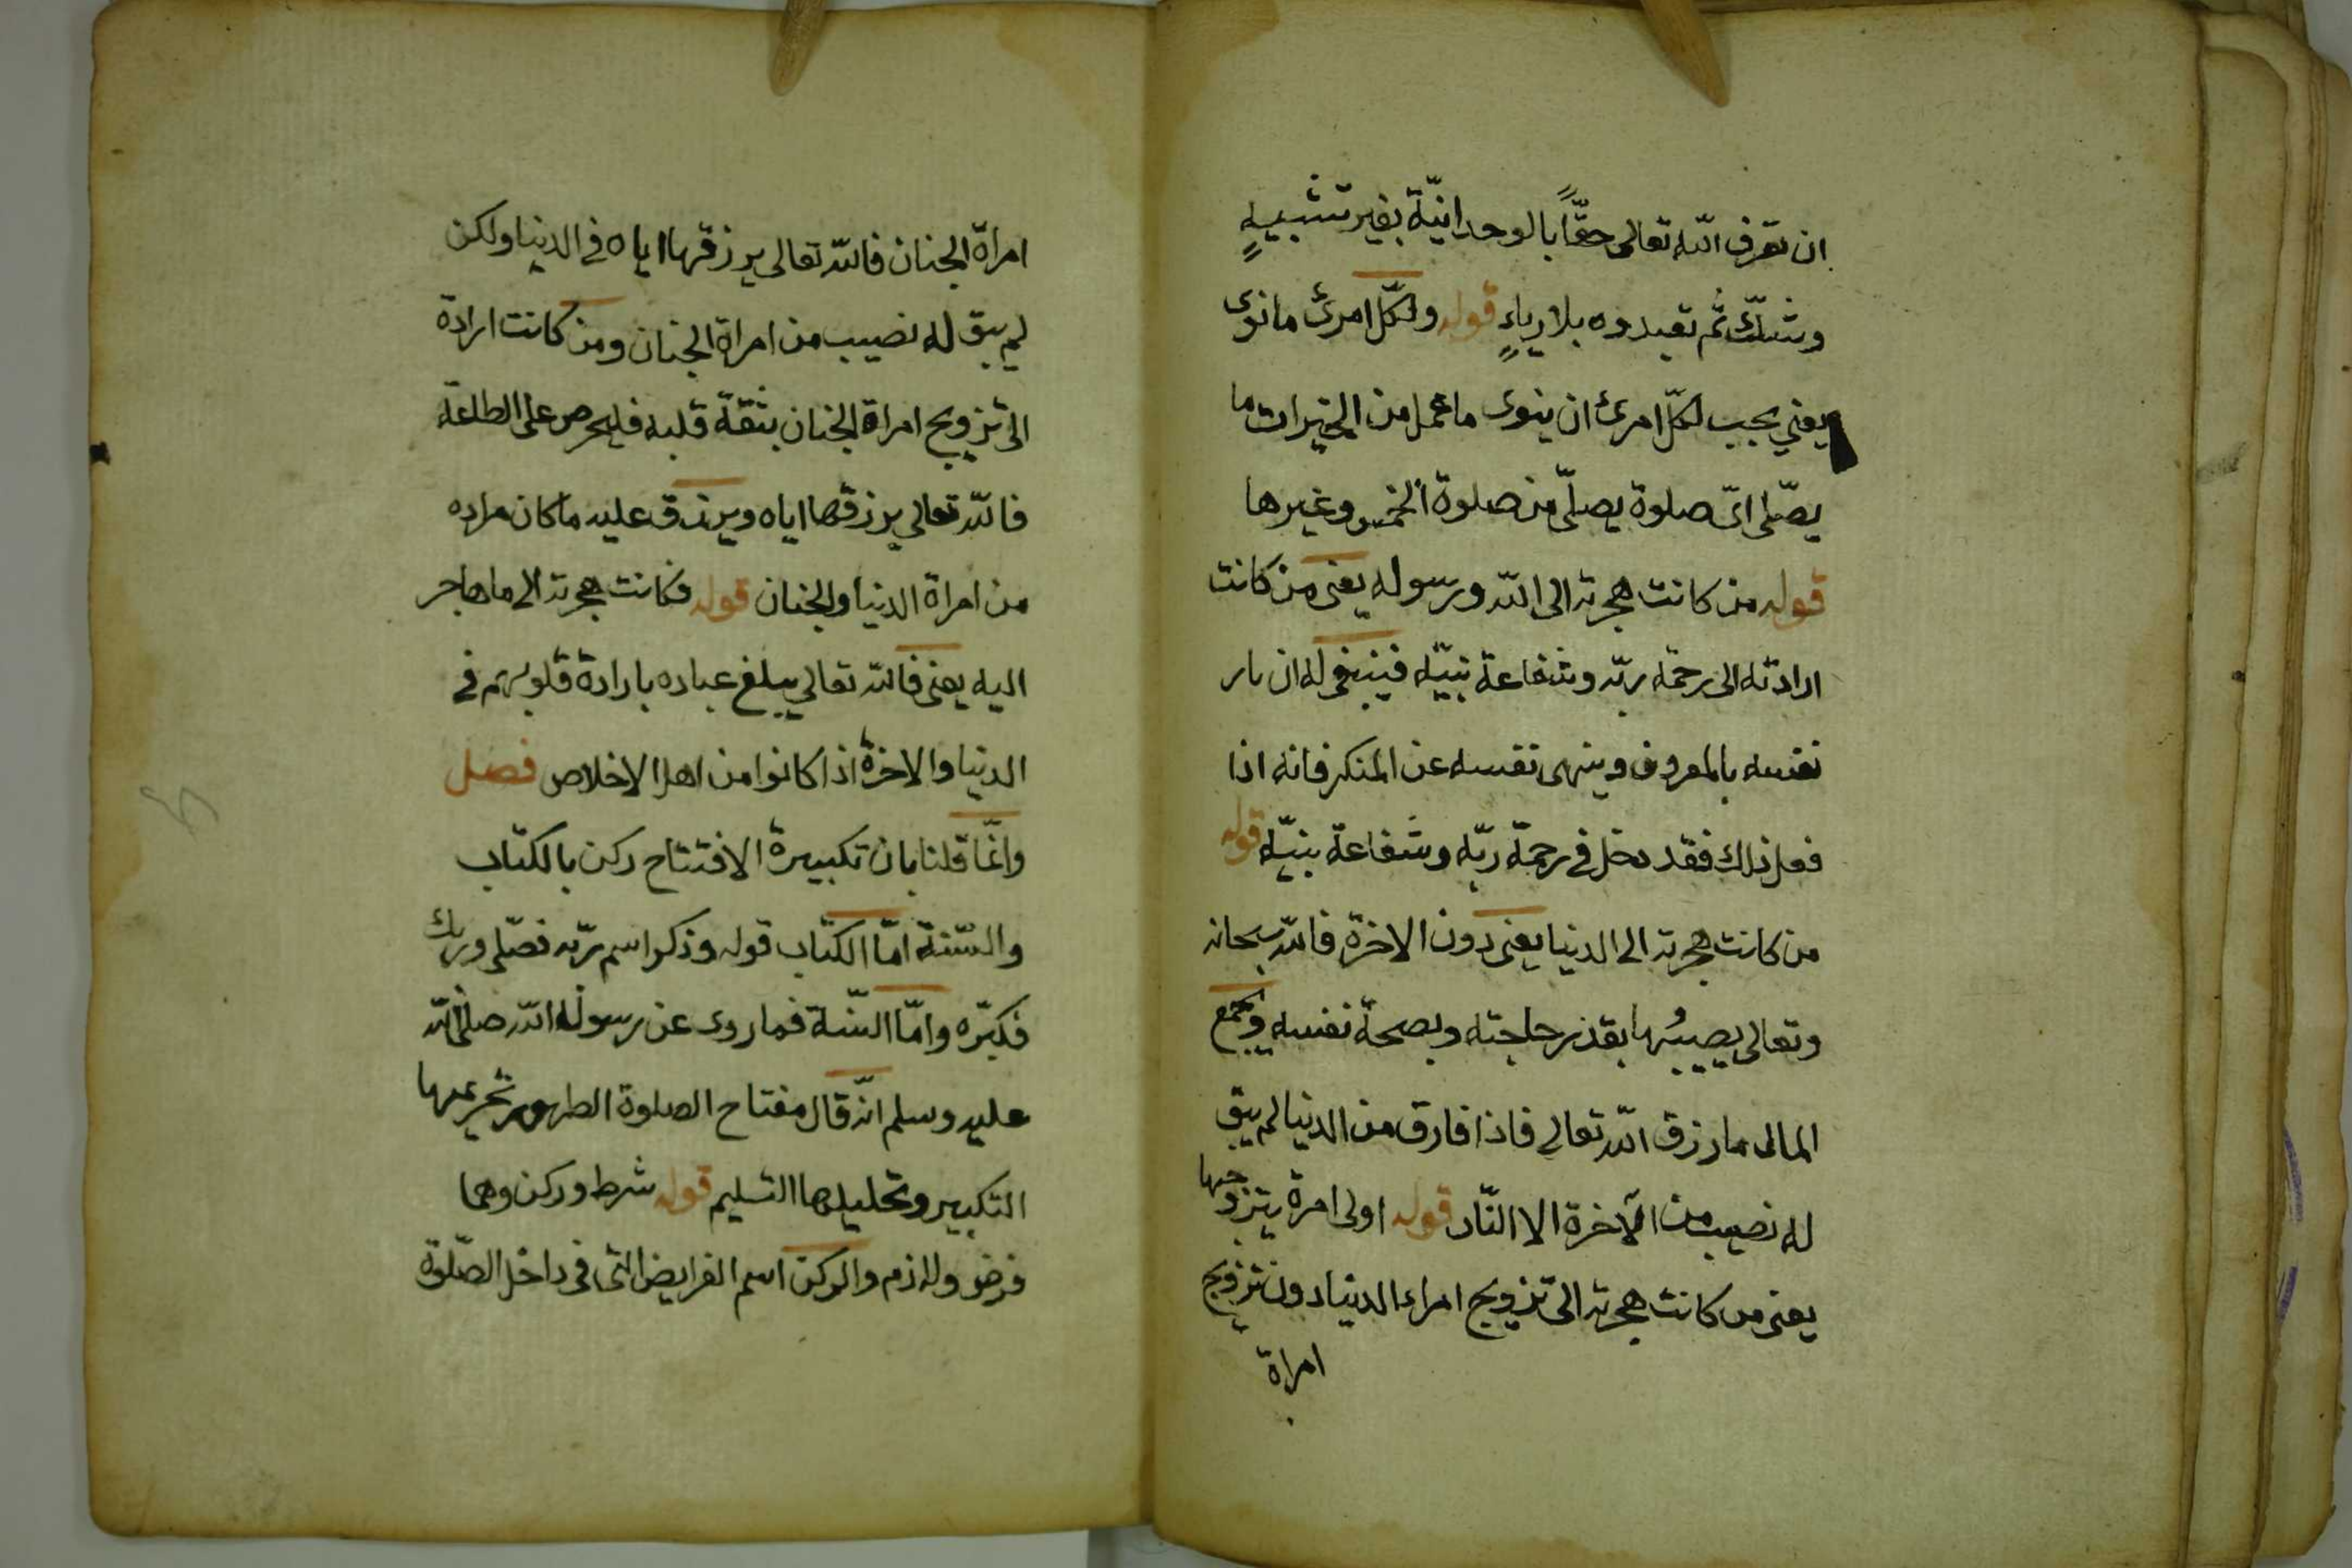 ان تعرف الله تعالى حقّاً بالوحدانيّة بغير تشبيهٍ
وشكّ ثم تعبدوه بلا رياءٍ قوله ولكلّ امرئ ما نوى
يعني يجب لكلّ امرئ ان ينوى ما عمل من الخيرات ما
يصلّى اىّ صلوة يصلّى من صلوة الخمس وغيرها
قوله من كانت هجرته الى الله ورسوله يعنى من كانت
ارادته الى رحمة ربّه وشفاعة نبيّه فينبغى له ان يامر
نفسه بالمعروف وينهى نفسه عن المنكر فانه اذا
فعل ذلك فقد دخل في رحمة ربّه وشفاعة نبيّه قوله
من كانت هجرته الى الدنيا يعنى دون الاخرة فالله سبحانه
وتعالى يصيبُها بقدر حاجته وبصحة نفسه ويجمع
المال ما رزق الله تعالى فاذا فارق من الدنيا لم يبق
له نصيب من الآخرة الا النّار قوله اولى امرة يتزوجها
يعنى من كانت هجرته الى تزويج امراء الدنيا دون تزويج
امراة
امراة الجنان فالله تعالى يرزقها اياه في الدنيا ولكن
لم يبق له نصيب من امراة الجنان ومن كانت ارادة
الى تزويج امراة الجنان بثقة قلبه فليحرص على الطاعة
فالله تعالى يرزقها اياه ويرزق عليه ما كان مراده
من امراة الدنيا والجنان قوله فكانت هجرته الى ما هاجر
اليه يعنى فالله تعالى يبلغ عباده بارادة قلوبهم في
الدنيا والاخرة اذا كانوا من اهل الاخلاص فصل
وانّما قلنا بان تكبيرة الافتتاح ركن بالكتاب
والسّنة امّا الكتاب قوله وذكر اسم ربّه فصلّى وربك
فكبّره وامّا السّنة فما روى عن رسول الله صلى الله
عليه وسلم انّه قال مفتاح الصلوة الطهور تحريمها
التكبير وتحليلها التسليم قوله شرط وركن وهما
فرض ولازم والركن اسم الفرايض التى في داخل الصّلوة